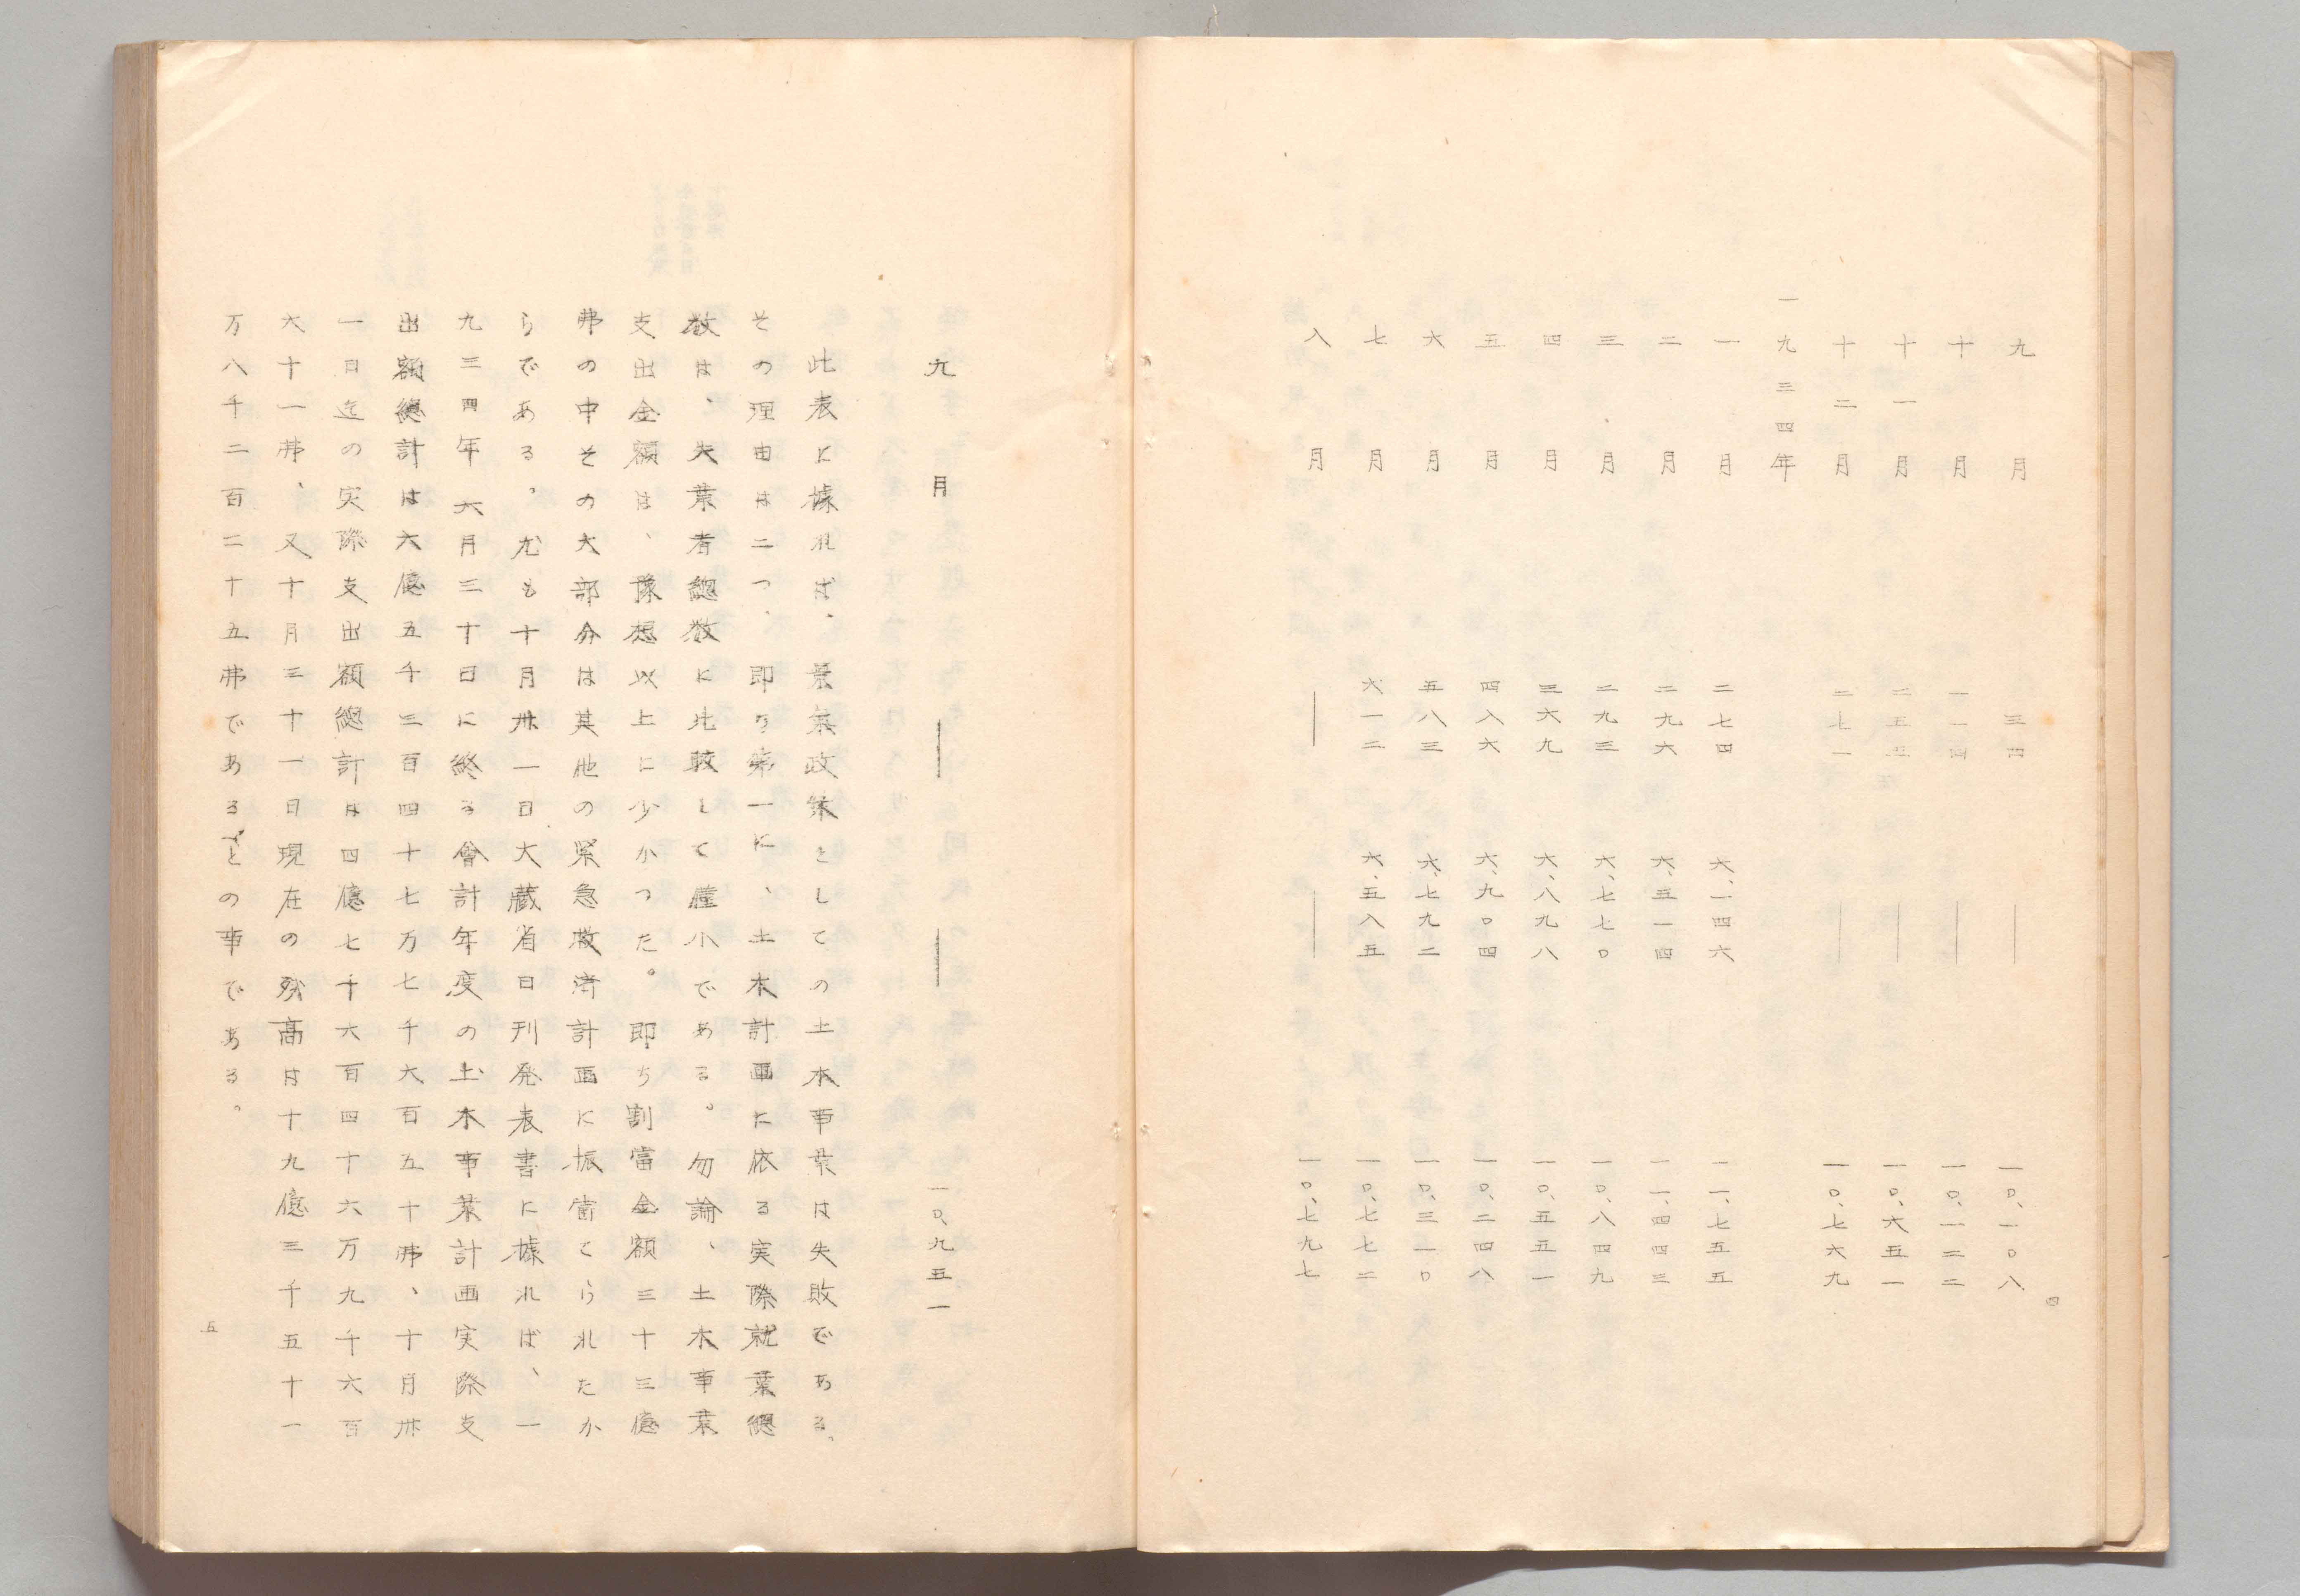 九月 三四 ── 一〇、一〇八
十月 一一四 ── 一〇、一二二
十一月 二五三 ── 一〇、六五一
十二月 二七一 ── 一〇、七六九
一九三四年
一月 二七四 六、一四六 一一、七五五
二月 二九六 六、三一四 一一、四四三
三月 二九三 六、七七〇 一〇、八四九
四月 三六九 六、八九八 一〇、五五一
五月 四八六 六、九〇四 一〇、二四八
六月 五八三 六、七九二 一〇、三一〇
七月 六一二 六、五八五 一〇、七七二
八月 ── ── 一〇、七九七
四
九月 ── ── 一〇、九五一
此表に據れば、景氣政策としての土木事業は失敗である、
その理由は二つ、即ち第一に、土木計画に依る実際就業總
数は、失業者總数に比較して僅小である。勿論、土木事業
支出金額は、豫想以上に少かつた。即ち割當金額三十三億
弗の中その大部分は其他の緊急救済計画に振當てられたか
らである。尤も十月卅一日大蔵省日刊発表書に據れば、一
九三四年六月三十日に終る會計年度の土木事業計画実際支
出額總計は六億五千三百四十七万七千六百五十弗、十月卅
一日迄の実際支出額總計は四億七千六百四十六万九千六百
六十一弗、又十月三十一日現在の残高は十九億三千五十一
万八千二百二十五弗であるとの事である。
五